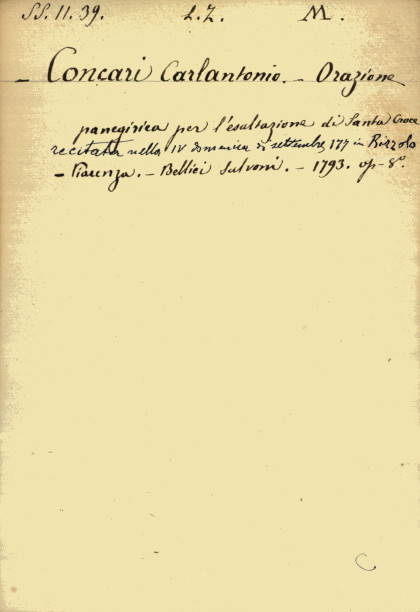 SS. 11. 39. L.Z. M.
- Concari Carlantonio. - Orazione
panegirica per l'esultazione di Santa Croce
recitata nella IV domenica di settembre, 177 in Rizzolo
- Piacenza. - Bellici Salvoni. - 1793. op - 8°.
C